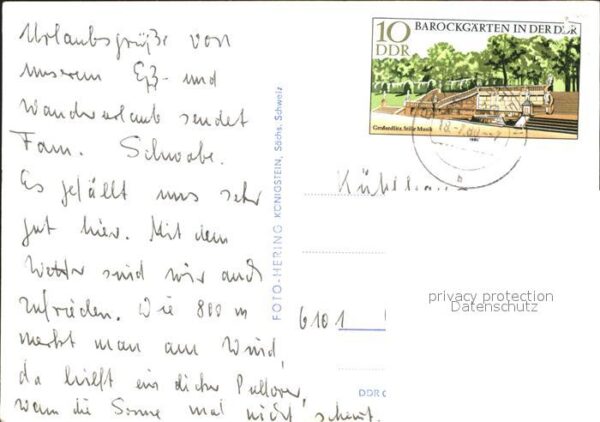 Urlaubsgrüße von
unserem Eß- und
Wanderurlaub sendet
Fam. Schwabe.
Es gefällt uns sehr
gut hier. Mit dem
Wetter sind wir auch
zufrieden. Die 800 m
merkt man am Wind,
da hilft ein dicker Pullover,
wenn die Sonne mal nicht scheint.
FOTO-HERING KÖNIGSTEIN, Sächs. Schweiz
10 BAROCKGÄRTEN IN DER DDR
DDR
Großsedlitz, Stille Musik
6101
privacy protection
Datenschutz
DDR